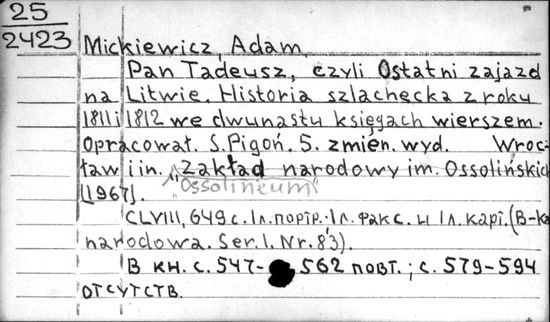 25
2423
Mickiewicz, Adam
Pan Tadeusz, czyli Ostatni zajazd
na Litwie. Historia szlachecka z roku
1811 i 1812 we dwunastu księgach wierszem.
Opracował. S. Pigoń. 5. zmien. wyd. Wroc-
ław i in. "Zakład narodowy im. Ossolińskich
Ossolineum"
[1967].
CLVIII, 649 с. 1 л. портр. 1 л. факс. ы 1 л. карт. (B-ka
narodowa. Ser. 1. Nr. 83).
В кн. с. 547- 562 повт.; с. 579-594
отсутств.